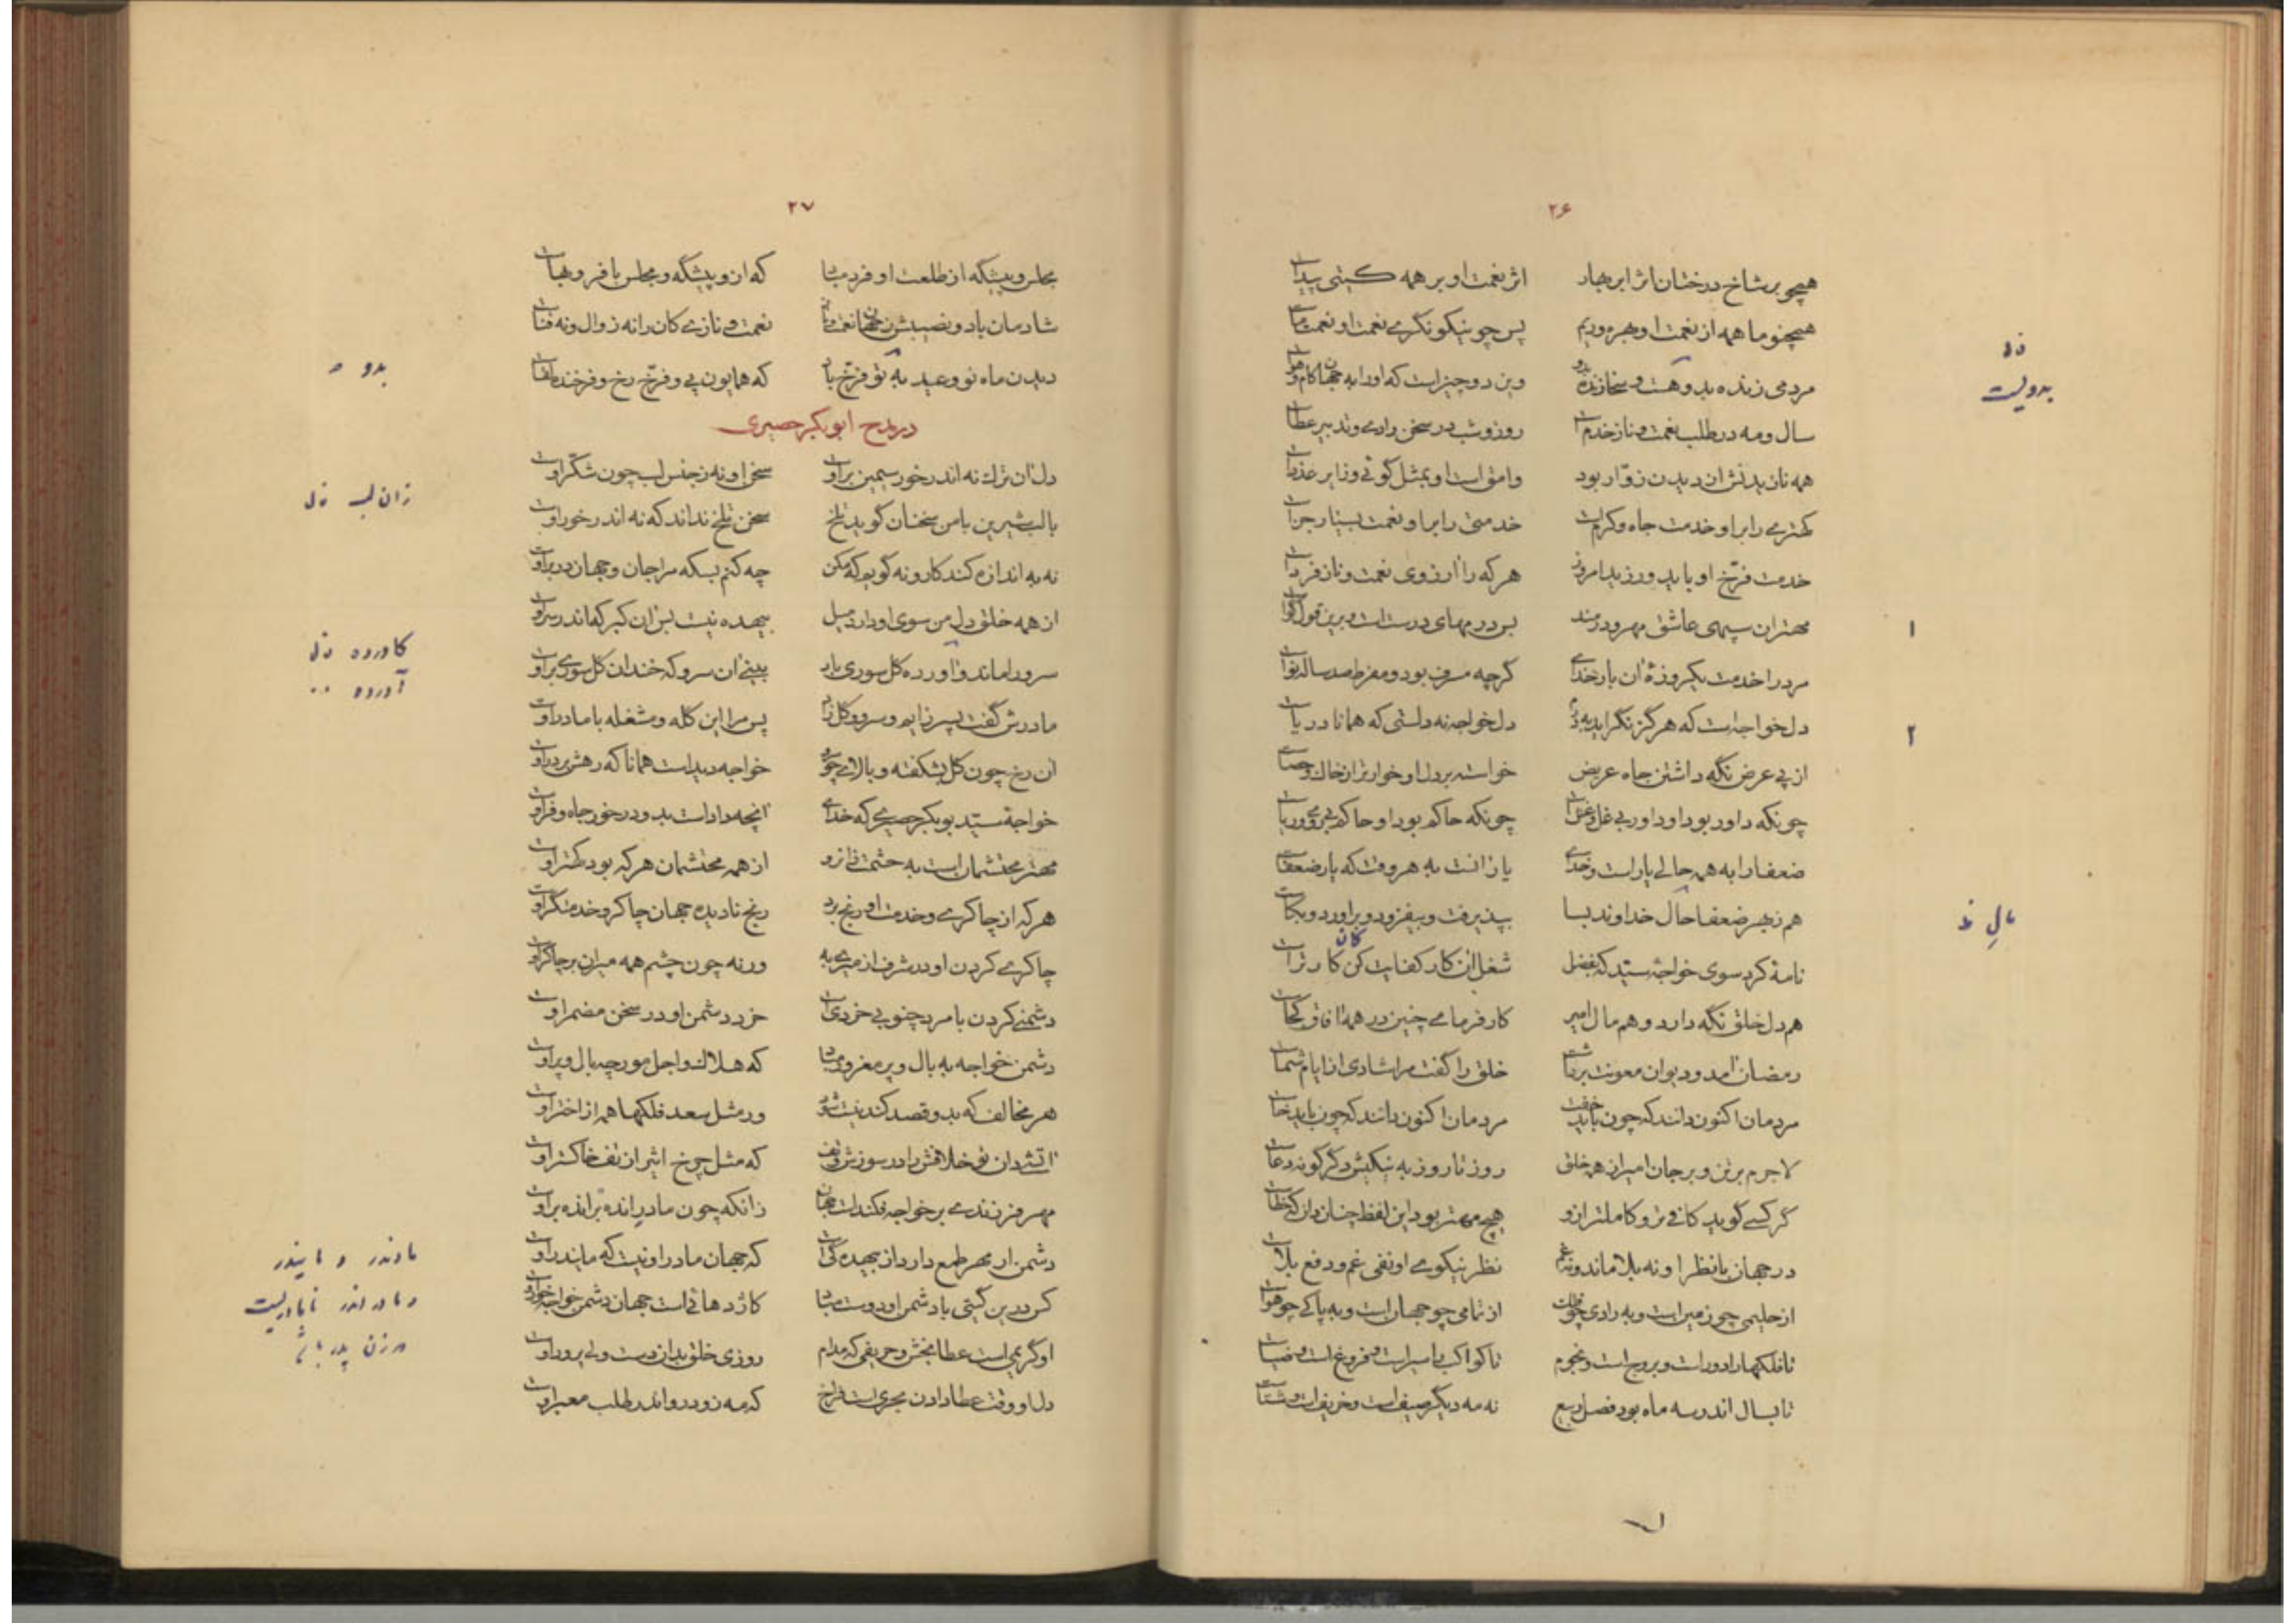 ۲۶
همچو بر شاخ درختان اثر ابر بهار اثر نعمت او بر همه گیتی پیداست
همچنو ما همه از نعمت او بهره‌وریم پس چو نیکو نگری نعمت او نعمت ماست
مردمی زنده بدویست و سخا زنده بدو وین دو چیز است که او را به جهان کام و هواست
سال و مه در طلب نعمت و ناز خدم است روز و شب در سخن رادی و تدبیر عطاست
همه نازیدنش از دیدن زوار بود وامق است او بمثل گوئی و زایر عذراست
کهتری را بر او خدمت جاه و کرم است خدمتی را بر او نعمت بسیار جزاست
خدمت فرّخ او باید ورزید امروز هر که را آرزوی نعمت و ناز فرداست
مهتران سیمی عاشق مهر و درمند بر درمهای درست است و برین قول گواست
مرد را خدمت یکروزهٔ آن بار خدای گرچه مسرف بود و مفرط صد ساله نواست
دل خواجه است که هرگز نگراید به درم دل خواجه نه دلستی که همانا دریاست
از پی عرض نگه داشتن جاه عریض خواسته بر دل او خوارتر از خاک و حصاست
چونکه داور بود او داور بی غل و غش است چونکه حاکم بود او حاکم بی روی و ریاست
ضعفا را به همه حالی یار است و خدای یار آنست به هر وقت که یار ضعفاست
هم ز بهر ضعفا حال خداوند بسا بپذیرفت و بیفزود و برآورد و بکاست
نامهٔ کرد سوی خواجهٔ سیّد که بفضل شغل آن کار کفایت کن کان کار تراست
هم دل خلق نگه دارد و هم مال امیر کارفرمای چنین در همه آفاق کجاست
رمضان آمد و دیوان معونت برداشت خلق را گفت مرا شادی از ایام شماست
مردمان اکنون دانند که چون باید خفت مردمان اکنون دانند که چون باید خاست
لاجرم بر تن و بر جان امیر از همه خلق روز تا روز به نیکیش دگر گونه دعاست
گر کسی گوید کافی تر و کاملتر ازو هیچ مهتر بود این لفظ چنان دان که خطاست
در جهان با نظر او نه بلا ماند و نه غم نظر نیکوی او نفی غم و دفع بلاست
از حلیمی چو زمین است و به رادی چو فلک است از تمامی چو جهان است و به پاکی چو هواست
تا فلکها را دور است و بروج است و نجوم تا کواکب را سیر است و فروغ است و ضیاست
تا بسال اندر سه ماه بود فصل ربیع نه مه دیگر صیف است و خریف است و شتاست
ن‌ل
بدویست
۱
۲
مالِ
۲۷
مجلس و پیشگه از طلعت او فرد مباد که ازو پیشگه و مجلس با فرّ و بهاست
شادمان باد و نصیبش ز جهان نعمت و ناز نعمت و نازی کان را نه زوال و نه فناست
دیدن ماه نو و عید به تو فرّخ باد که همایون پی و فرّخ رخ و فرخنده لقاست
در مدح ابوبکر حصیری
دل آن ترک نه اندر خور سیمین بر اوست سخن او نه ز جنس لب چون شکّر اوست
با لب شیرین با من سخنان گوید تلخ سخن تلخ نداند که نه اندر خور اوست
نه به اندازه کند کار و نه گوید که مکن چه کنم بسکه مرا جان و جهان در بر اوست
از همه خلق دل من سوی او دارد میل بیهده نیست پس آن کبر که اندر سر اوست
سرو را ماند و آورده گل سوری بار بینی آن سرو که خندان گل سوری بر اوست
مادرش گفت پسر زایم و سرو و گل زاد پس مرا این گله و مشغله با مادر اوست
آن رخ چون گل بشکفته و بالای چو سرو خواجه دیداست همانا که رهش بر در اوست
خواجهٔ سیّد بوبکر حصیری که خدای آنچه داداست بدو در خور جاه و فر اوست
مهتر محتشمان است به حشمت و ازو از همه محتشمان هر که بود کهتر اوست
هر که از چاکری و خدمت او رنج برد رنج نادیده جهان چاکر و خدمتگر اوست
چاکری کردن او در شرف از میری به ورنه چون چشم همه میران بر چاکر اوست
دشمنی کردن با مرد چنو بی خردی است خرد دشمن او در سخن مضمر اوست
دشمن خواجه به بال و پر مغرور مباد که هلاک و اجل مورچه بال و پر اوست
هر مخالف که بدو قصد کند نیست شود ور مثل سعد فلکها همه از اختر اوست
آتشی دان تو خلافش را در سوزش و تف که مثل چرخ اثیر از تف خاکستر اوست
مهر فرزندی بر خواجه فکنداست جهان زانکه چون مادر انده بر انده بر اوست
دشمن ار مهر طمع دارد از بیهده گی است که جهان مادر او نیست که مایندر اوست
گر درین گیتی با دشمن او دوست مباد کاژدهائی است جهان دشمن خواجه خور اوست
او گریمی است عطا بخش و حریفی که مدام روزی خلق بدان دست ولی پرور اوست
دل او وقت عطا دادن بحری است فراخ که مه زود رو اندر طلب معبر اوست
بدو
زان لب ن‌ل
کاورده ن‌ل
آورده
مادندر و مایندر
و مادر اندر نامادریست